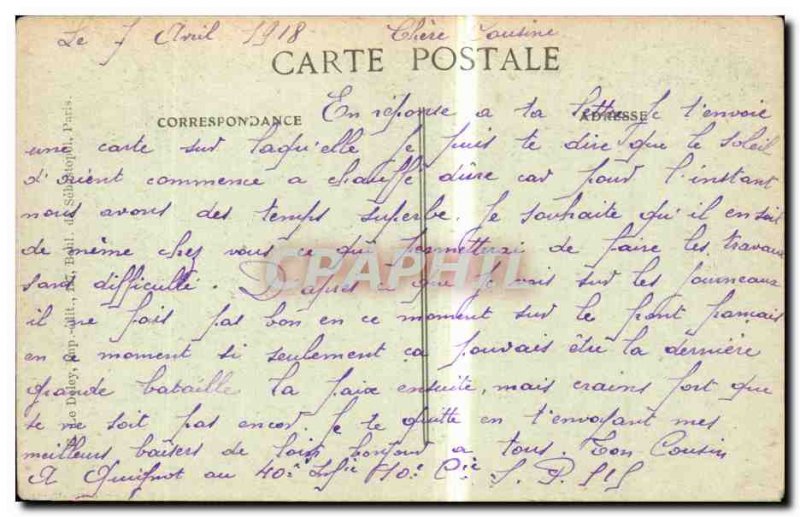 Le 7 Avril 1918 Chère Cousine
CARTE POSTALE
CORRESPONDANCE
ADRESSE
En réponse a ta lettre Je t'envoie
une carte sur laqu'elle Je puis te dire que le soleil
d'orient commence a chauffé dûre car pour l'instant
nous avons des temps superbe. Je souhaite qu'il en soit
de même chez vous ce qui permetterai de faire les travaux
sans difficulté. D'après ce que Je vois sur les Journeaux
il ne fais pas bon en ce moment sur le front français
en ce moment si seulement ca pouvais être la dernière
grande bataille la paix ensuite, mais crains fort que
se ne soit pas encor. Je te quitte en t'envoyant mes
meilleurs baisers de loin bonjour a tous. Ton Cousin
A Guignot au 40e Inf.ie 10e Cie S. P. 515
Le Deley, imp.-édit., 127, Boul. de Sébastopol, Paris.
CPRAPHIL